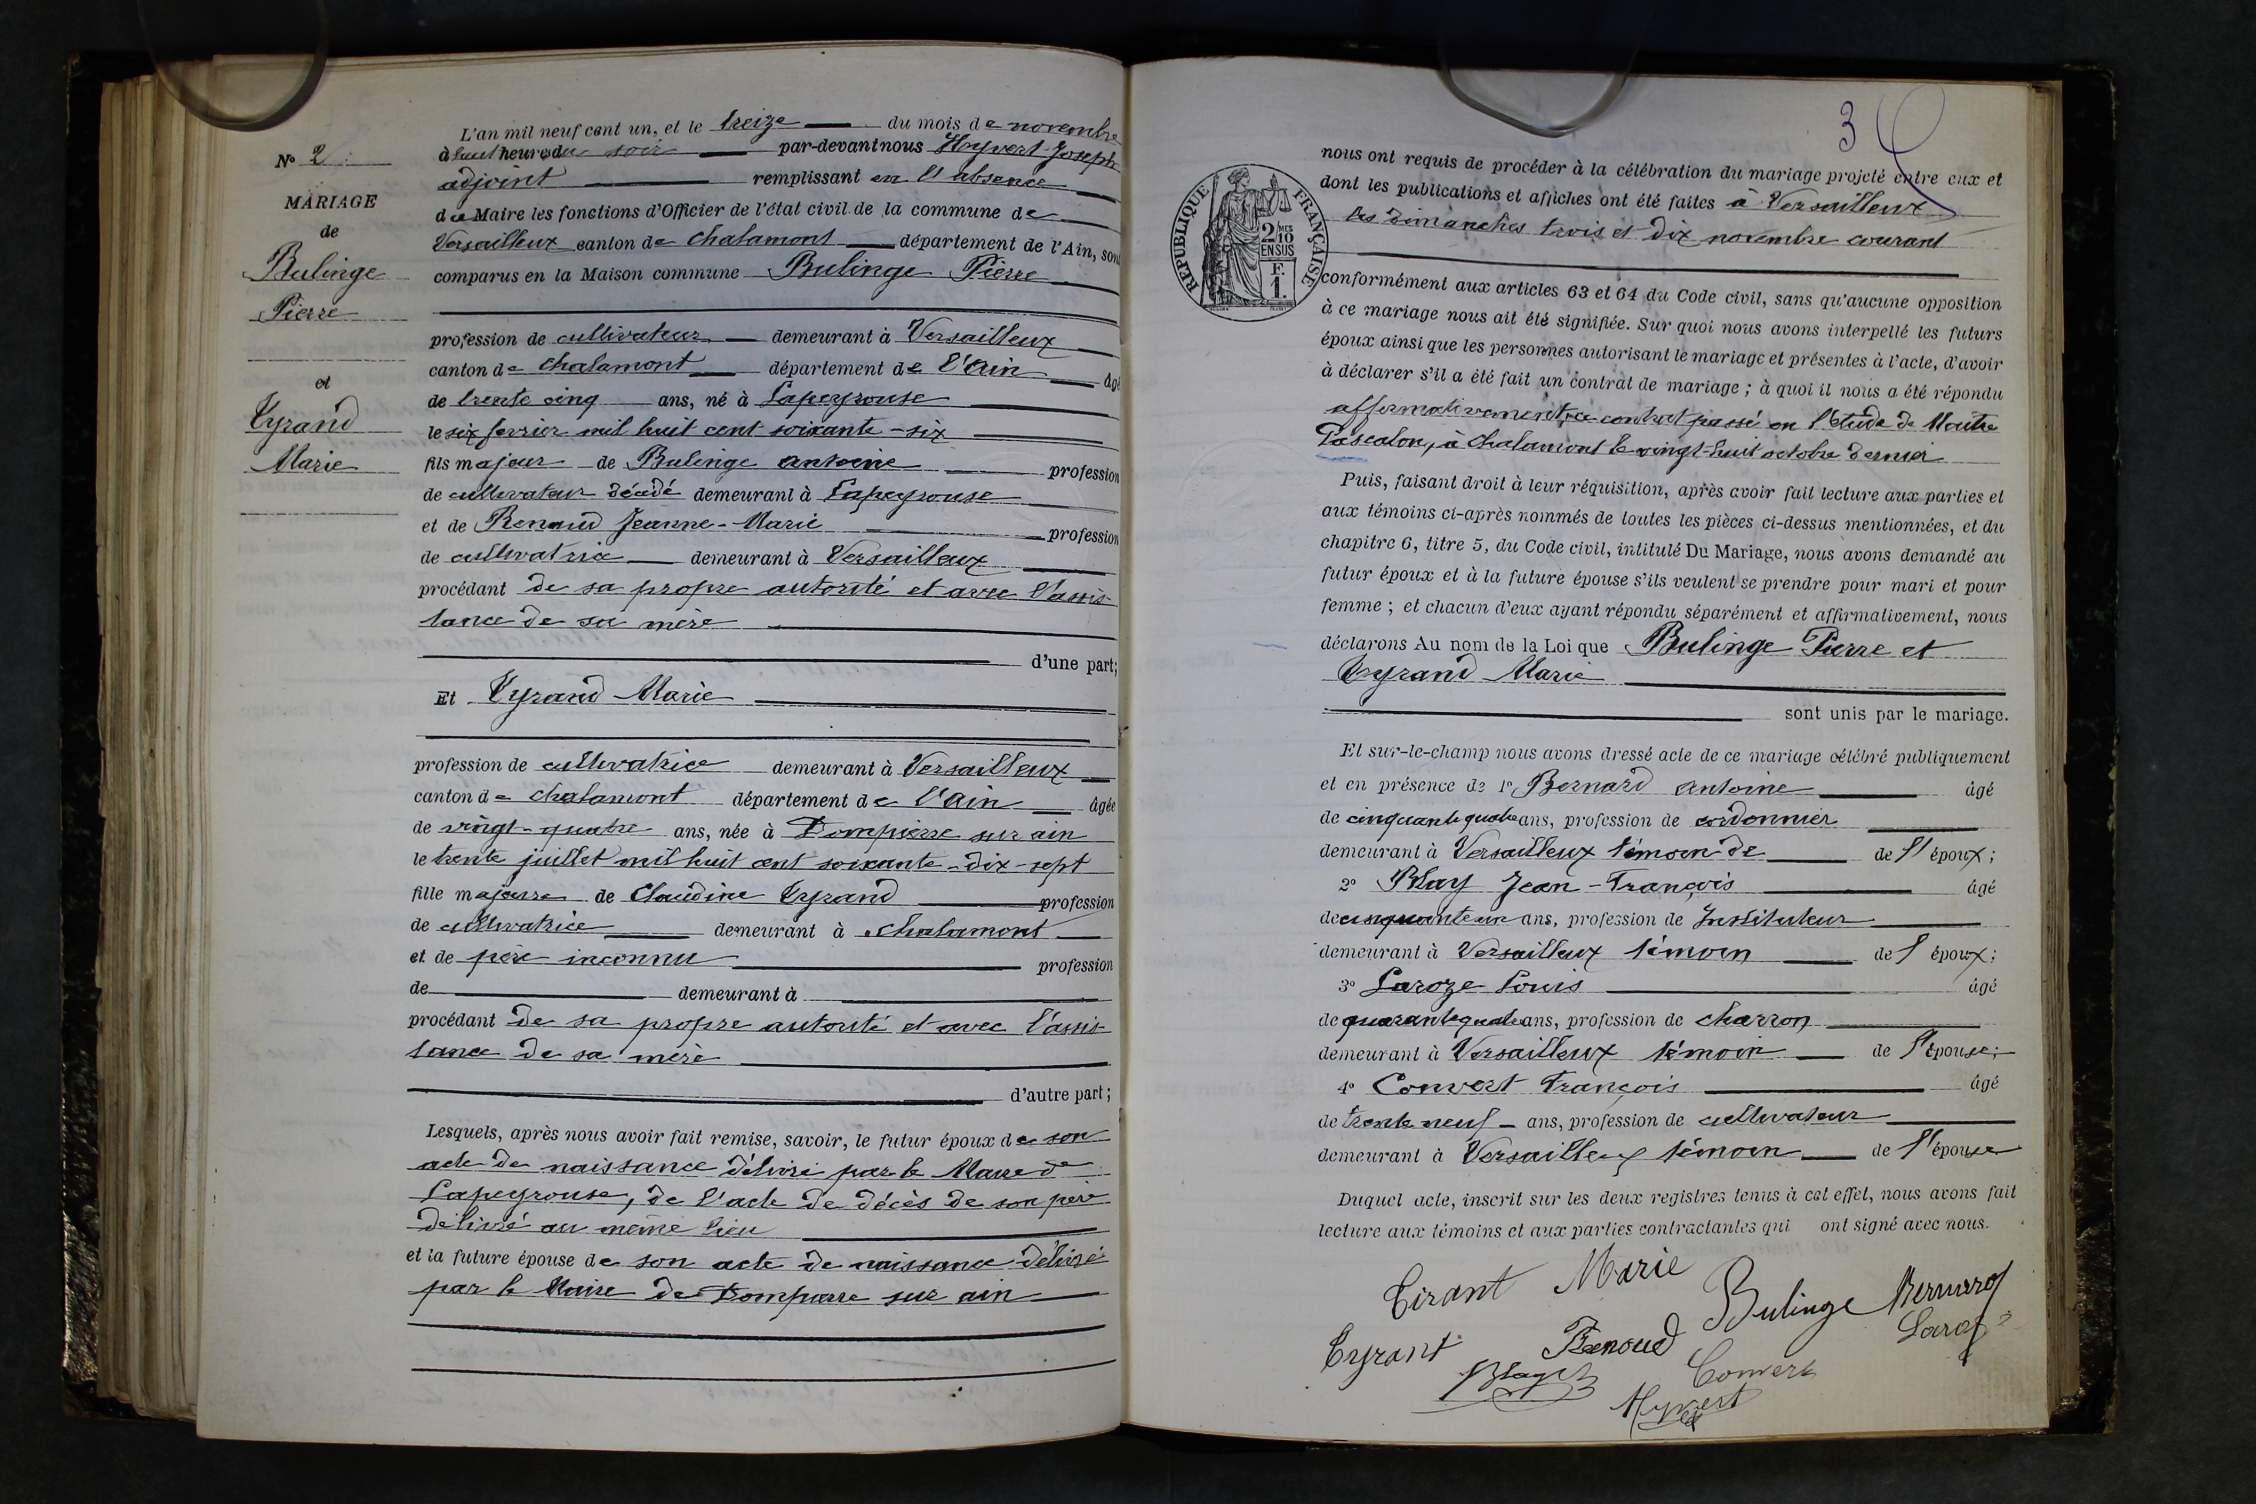 N° 2
MARIAGE
de
Bulinge
Pierre
et
Tyrand
Marie
L'an mil neuf cent un, et le treize du mois de novembre
à huit heures du soir par-devant nous Hyvert Joseph
adjoint remplissant en l'absence
du Maire les fonctions d'Officier de l'état civil de la commune de
Versailleux canton de Chalamont département de l'Ain, sont
comparus en la Maison commune Bulinge Pierre
profession de cultivateur demeurant à Versailleux
canton de Chalamont département de l'Ain âgé
de trente cinq ans, né à Lapeyrouse
le six fevrier mil huit cent soixante-six
fils majeur de Bulinge Antoine profession
de cultivateur décédé demeurant à Lapeyrouse
et de Renaud Jeanne-Marie profession
de cultivatrice demeurant à Versailleux
procédant de sa propre autorité et avec l'assis-
tance de sa mère
d'une part;
Et Tyrand Marie
profession de cultivatrice demeurant à Versailleux
canton de Chalamont département de l'Ain âgée
de vingt-quatre ans, née à Dompierre sur ain
le trente juillet mil huit cent soixante-dix-sept
fille majeure de Claudine Tyrand profession
de cultivatrice demeurant à Chalamont
et de père inconnu profession
de demeurant à
procédant de sa propre autorité et avec l'assis
tance de sa mère
d'autre part;
Lesquels, après nous avoir fait remise, savoir, le futur époux de son
acte de naissance délivré par le Maire de
Lapeyrouse, de l'acte de décès de son père
délivré au même lieu
et la future épouse de son acte de naissance délivré
par le Maire de Dompierre sur ain
3
RÉPUBLIQUE FRANÇAISE
2/10 MES
EN SUS
F.
1.
nous ont requis de procéder à la célébration du mariage projeté entre eux et
dont les publications et affiches ont été faites à Versailleux
les Dimanches trois et Dix novembre courant
conformément aux articles 63 et 64 du Code civil, sans qu'aucune opposition
à ce mariage nous ait été signifiée. Sur quoi nous avons interpellé les futurs
époux ainsi que les personnes autorisant le mariage et présentes à l'acte, d'avoir
à déclarer s'il a été fait un contrat de mariage ; à quoi il nous a été répondu
affirmativement, ce contrat passé en l'étude de Maitre
Pascalon, à Chalamont le vingt-huit octobre dernier
Puis, faisant droit à leur réquisition, après avoir fait lecture aux parties et
aux témoins ci-après nommés de toutes les pièces ci-dessus mentionnées, et du
chapitre 6, titre 5, du Code civil, intitulé Du Mariage, nous avons demandé au
futur époux et à la future épouse s'ils veulent se prendre pour mari et pour
femme ; et chacun d'eux ayant répondu séparément et affirmativement, nous
déclarons Au nom de la Loi que Bulinge Pierre et
Tyrand Marie
sont unis par le mariage.
Et sur-le-champ nous avons dressé acte de ce mariage célébré publiquement
et en présence de 1° Bernard Antoine âgé
de cinquante quatre ans, profession de cordonnier
demeurant à Versailleux témoin de de l'époux ;
2° Blay Jean-François âgé
de cinquante un ans, profession de Instituteur
demeurant à Versailleux témoin de l'époux ;
3° Laroze Louis âgé
de quarante quatre ans, profession de charron
demeurant à Versailleux témoin de l'épouse ;
4° Convert François âgé
de trente neuf ans, profession de cultivateur
demeurant à Versailleux témoin de l'épouse
Duquel acte, inscrit sur les deux registres tenus à cet effet, nous avons fait
lecture aux témoins et aux parties contractantes qui ont signé avec nous.
Tirant Marie Bulinge Bernard
Tyrant Renoud Laroze
Blay Convert
Hyvert